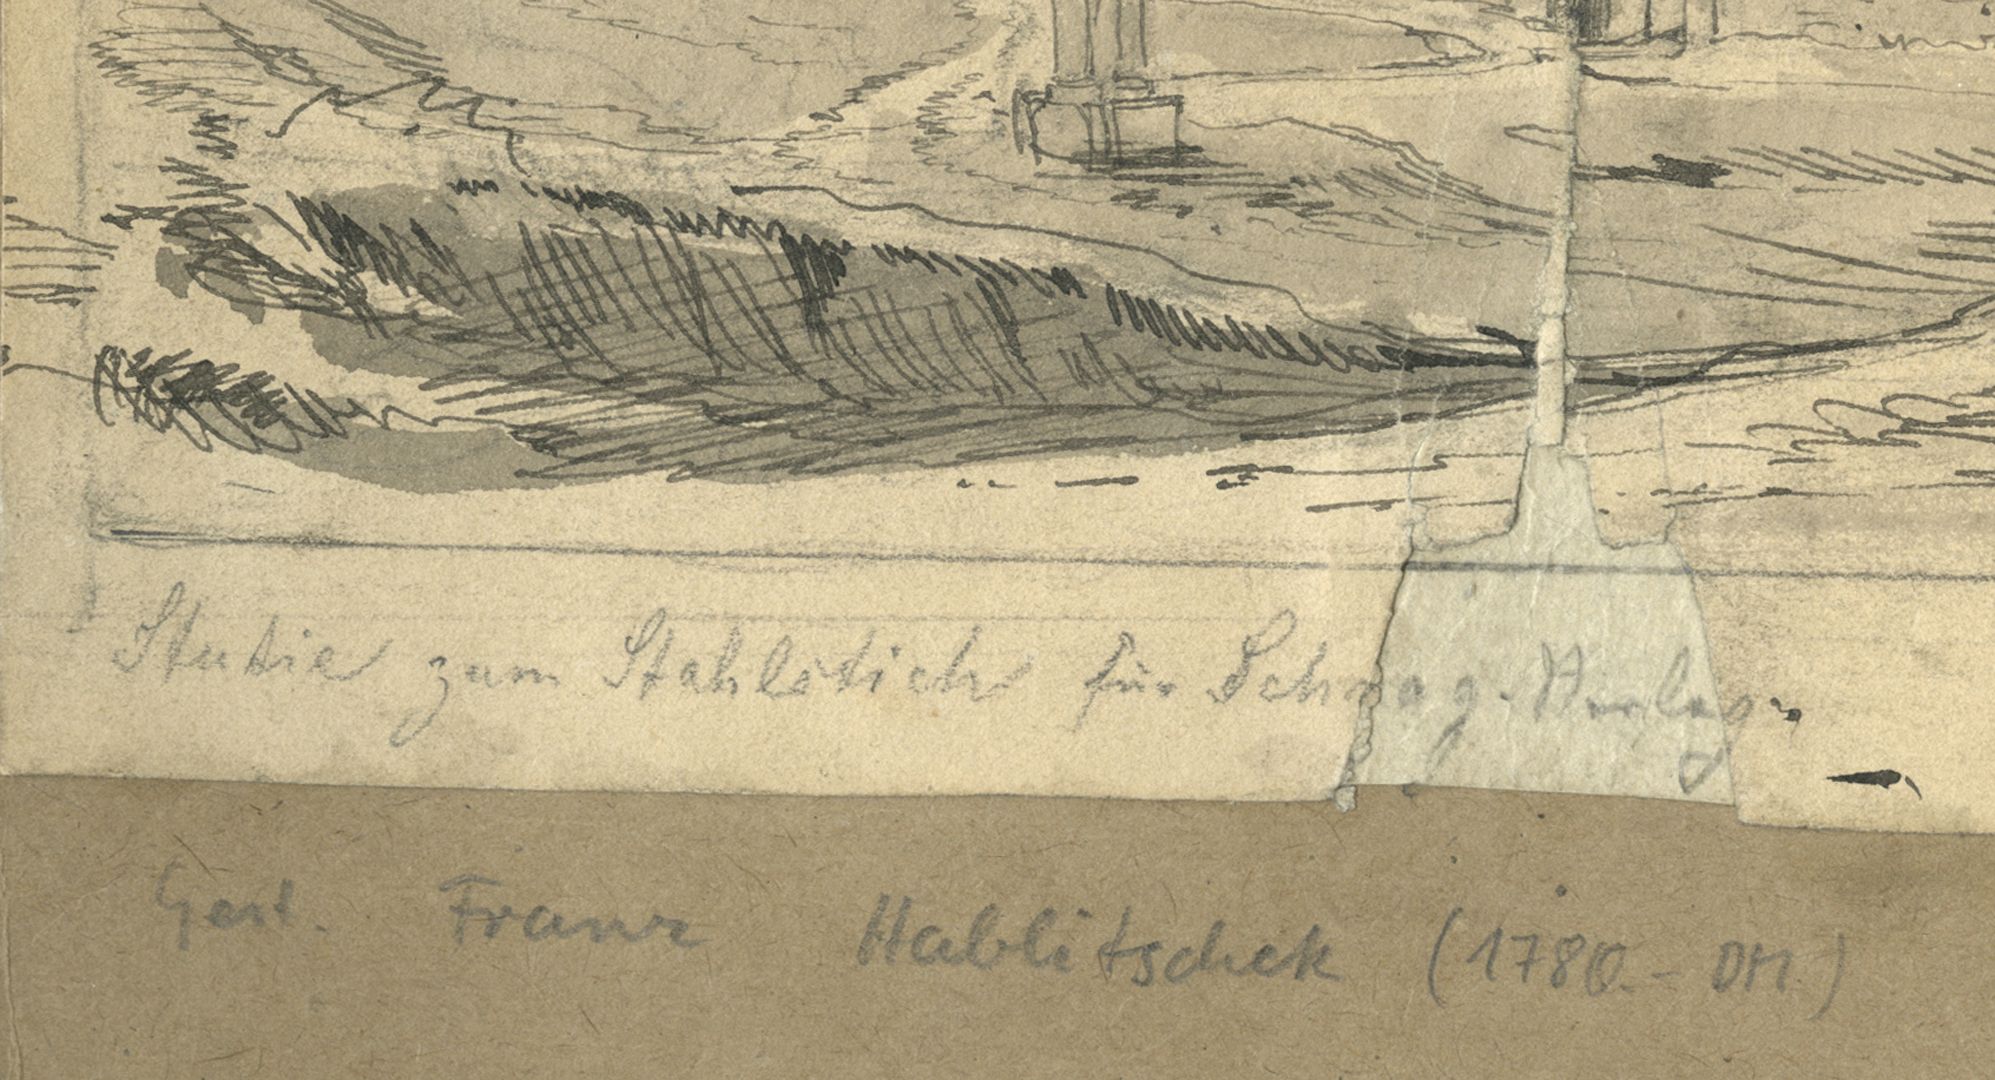 Studie zum Stahlstich für Schrag-Verlag.
Gest. Franz Hablitschek (1780 -